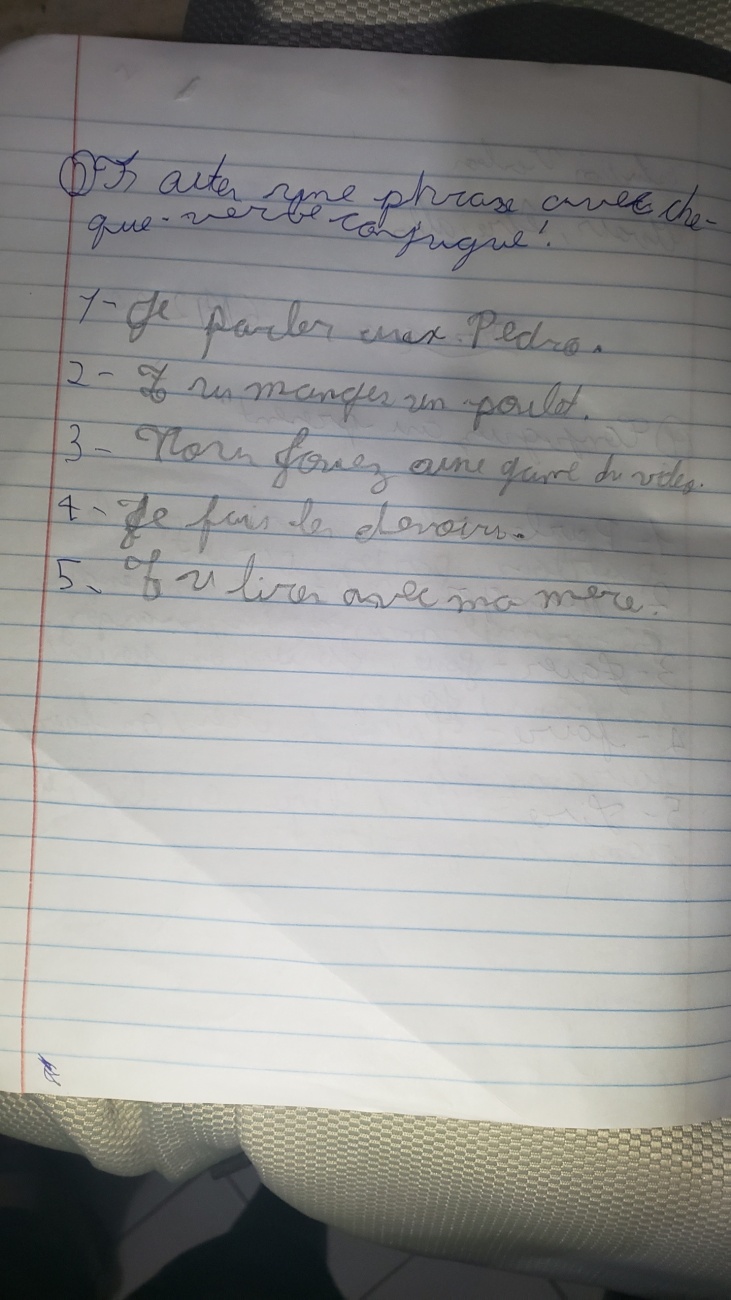 ② Faites une phrase avec cha-
que verbe conjugué!
1- Je parler avex Pedro.
2- Tu manges un poulet.
3- Nous jouez une game du video.
4- Je fais le devoirs.
5- Tu lires avec ma mere.